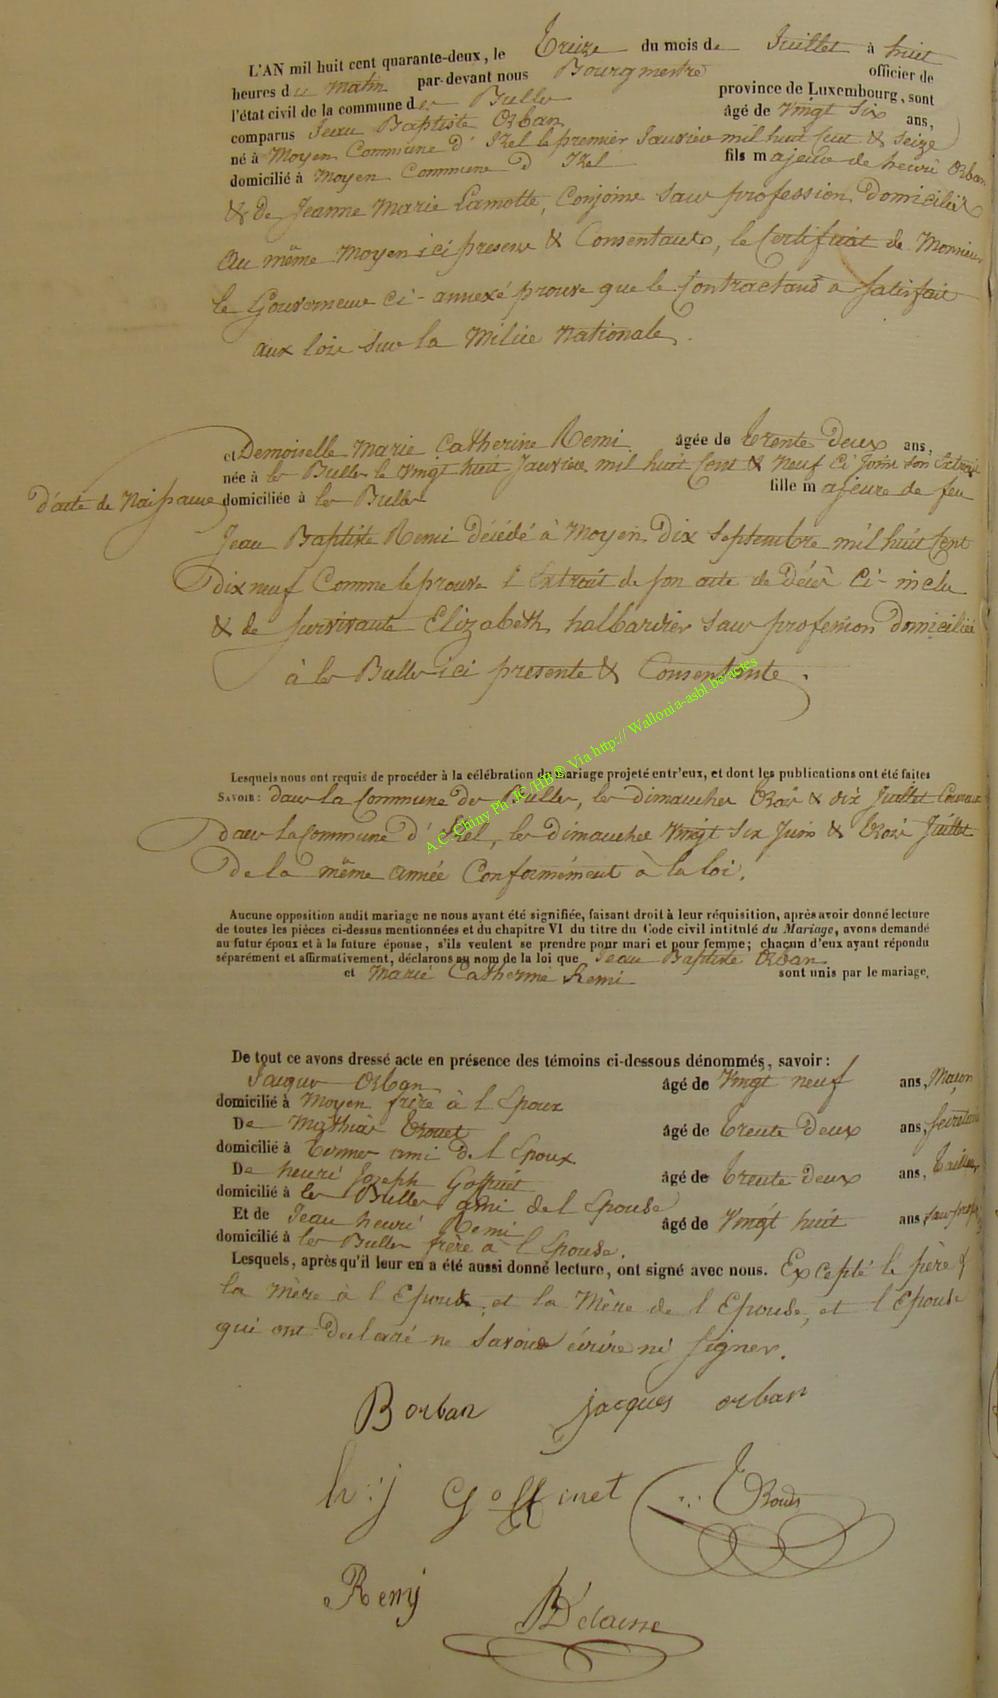 L'AN mil huit cent quarante-deux, le Treize du mois de Juillet à huit
heures du matin par-devant nous Bourgmestre officier de
l'état civil de la commune des Bulles province de Luxembourg, sont
comparus Jean Baptiste Orban âgé de vingt six ans,
né à Moyen Commune d' Izel le premier Janvier mil huit Cent & Seize
domicilié à Moyen Commune d' Izel fils majeur de henri Orban
& de Jeanne Marie Lamotte, Conjoins sans profession domiciliés
au même Moyen ici presens & Consentants, le Certificat de Monsieur
le Gouverneur Ci-annexé prouve que le Contractant a satisfait
aux lois sur la Milice Nationale.
et Demoiselle Marie Catherine Remi âgée de Trente Deux ans,
née à les Bulles le vingt huit Janvier mil huit Cent & Neuf Ci Joint son Extrait
d'acte de Naissance domiciliée à les Bulles fille majeure de feu
Jean Baptiste Remi Décédé à Moyen Dix septembre mil huit Cent
Dix neuf Comme le prouve l'Extrait de son acte de Décès Ci-inclu
& de survivante Elizabeth halbardier sans profession Domiciliée
à les Bulles ici presente & Consentante.
A.C. Chiny Ph. JC/HB® Via http://Wallonia-asbl.be/actes
Lesquels nous ont requis de procéder à la célébration du mariage projeté entr'eux, et dont les publications ont été faites
SAVOIR: dans la Commune des Bulles, les dimanches trois & dix Juillet Courant
Dans la Commune d' Izel, les dimanches vingt six Juin & trois Juillet
De la même année Conformément à la loi.
Aucune opposition audit mariage ne nous ayant été signifiée, faisant droit à leur réquisition, après avoir donné lecture
de toutes les pièces ci-dessus mentionnées et du chapitre VI du titre du Code civil intitulé du Mariage, avons demandé
au futur époux et à la future épouse, s'ils veulent se prendre pour mari et pour femme; chacun d'eux ayant répondu
séparément et affirmativement, déclarons au nom de la loi que Jean Baptiste Orban
et Marie Catherine Remi sont unis par le mariage.
De tout ce avons dressé acte en présence des témoins ci-dessous dénommés, savoir:
Jaques Orban âgé de Vingt neuf ans, Maçon
domicilié à Moyen frère à l Epoux
De Mathias âgé de Trente Deux ans, secrétaire
domicilié à ami de l Epoux
De henri Joseph Goffinet âgé de Trente Deux ans, Tailleur
domicilié à les Bulles ami de l Epouse
Et de Jean henri Remi âgé de Vingt huit ans sans prof.
domicilié à les Bulles frère à l Epouse.
Lesquels, après qu'il leur en a été aussi donné lecture, ont signé avec nous. Excepté le père &
la Mère à l Epoux, et la Mère de l Epouse, et l Epouse
qui ont declaré ne savoir écrire ni signer.
B orban jacques orban
h: j Goffinet
Remy